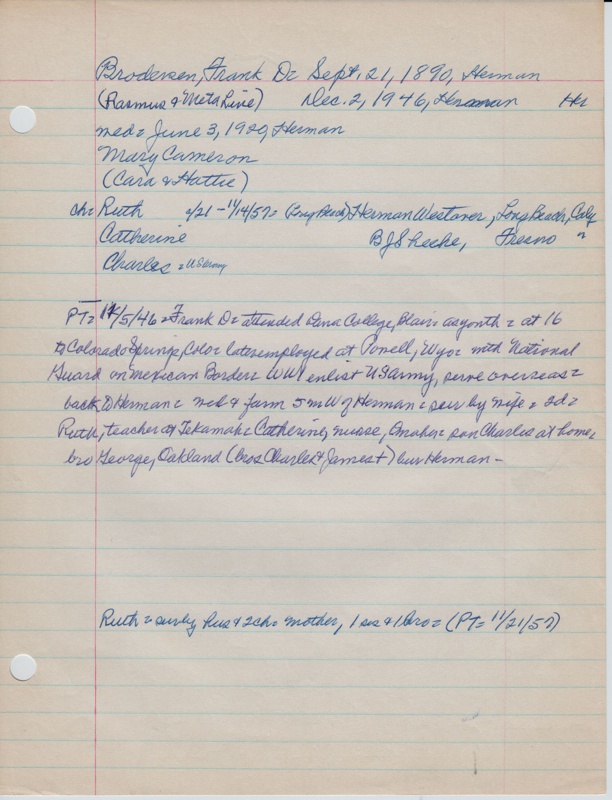 Brodersen, Frank D= Sept. 21, 1890, Herman
(Rasmus & Meta Line) Dec. 2, 1946, Herman
med= June 3, 1920, Herman
Mary Cameron
(Card & Hattie)
ch= Ruth 2/21 - 11/14/57= (Long Beach) Herman Westover, Long Beach, Calif
Catherine B J Sheehe, Fresno "
Charles = US Army
PT= 12/5/46 = Frank D= attended Dana College, Blair= as youth = at 16
to Colorado Springs, Colo= later employed at Powell, Wyo= with National
Guard on Mexican Border= WWI enlist US Army, serve overseas=
back to Herman= med & farm 5 m W of Herman= surv by wife = 2d=
Ruth, teacher at Tekamah= Catherine, nurse, Omaha= son Charles at home=
bro George, Oakland (bros Charles & James +) bur Herman -
Ruth = surv by hus & 2 ch= mother, 1 sis & 1 bro = (PT= 11/21/57)